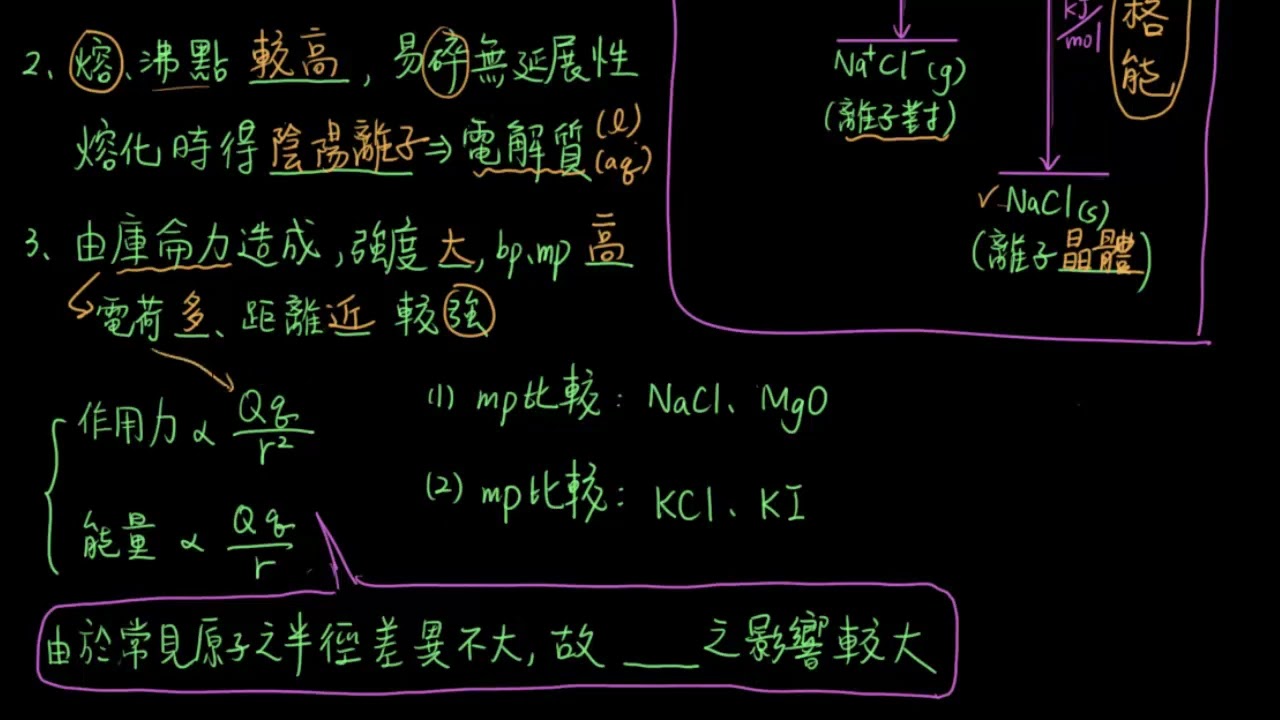 2、熔、沸點 較高,易碎無延展性
熔化時得陰陽離子⇒電解質(l)
(aq)
3、由庫侖力造成,強度大,bp、mp 高
電荷多、距離近 較強
作用力 ∝ Qq/r²
能量 ∝ Qq/r
(1) mp比較:NaCl、MgO
(2) mp比較:KCl、KI
由於常見原子之半徑差異不大,故 ___ 之影響較大
Na⁺Cl⁻(g)
(離子對)
kJ/mol
格能
✓NaCl(s)
(離子晶體)